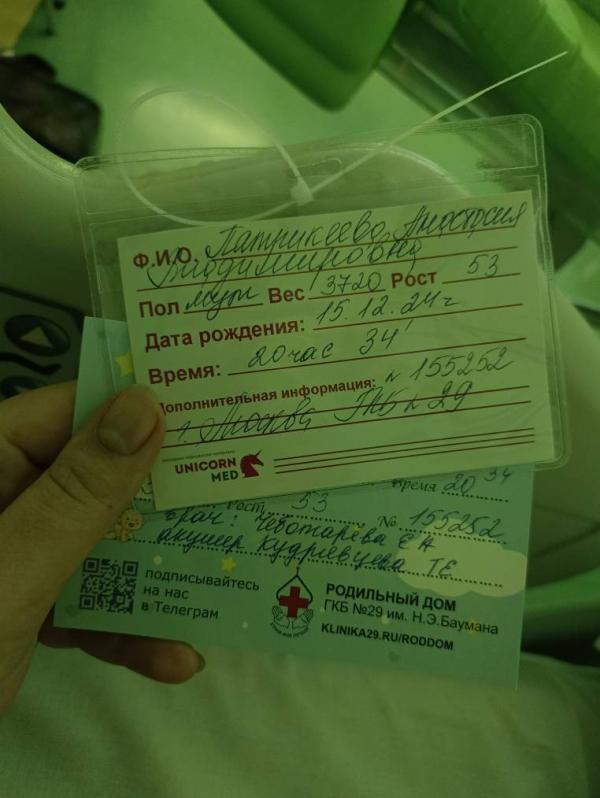 Ф.И.О. Патрикеева Анастасия
Владимировна
Пол муж Вес 3720 Рост 53
Дата рождения: 15.12.24г
Время: 20час 34'
Дополнительная информация: N 155252
г. Москва ГКБ N 29
UNICORN
MED
Время 20 34
Рост 53 № 155252
Врач: Чеботарева Е А
акушер Кудрявцева ТЕ
подписывайтесь
на нас
в Телеграм
РОДИЛЬНЫЙ ДОМ
ГКБ №29 им. Н.Э.Баумана
KLINIKA29.RU/RODDOM